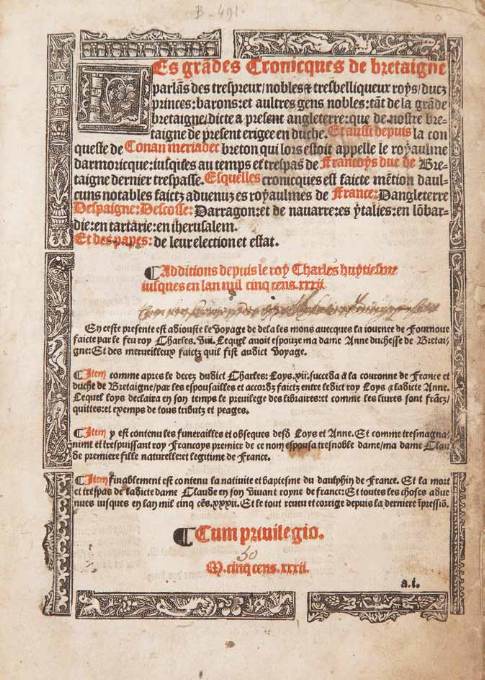 B-491.
Les grãdes Cronicques de bretaigne
parlãs des trespreux/nobles & tresbelliqueux roys/ducz
princes: barons: et aultres gens nobles: tãt de la grãde
bretaigne/dicte a present angleterre: que de nostre bre-
taigne de present erigee en duche. Et aussi depuis la con
queste de Conan meriadec breton qui lors estoit appelle le royaulme
darmoricque: iusq̃s au temps et trespas de Francoys duc de Bre-
taigne dernier trespasse. Esquelles cronicques est faicte mẽtion daul-
cuns notables faictz aduenuz es royaulmes de France: Dangleterre
Despaigne: Descosse: Darragon: et de nauarre: es ytalies: en lõbar-
die: en tartarie: en iherusalem.
Et des papes: de leur election et estat.
¶ Additions depuis le roy Charles huytiesme
iusques en lan mil cinq cens. xxxii.
En ceste presente est adiouste le voyage de dela les mons auecques la iournee de Fournoue
faicte par le feu roy Charles. viii. Lequel auoit espouze ma dame Anne duchesse de Bretai/
gne: Et des merueilleux faictz quil fist audict voyage.
¶ Item comme apres le decez dudict Charles: Loys. xii. succeda à la couronne de France et
duche de Bretaigne/par les espousailles et accordz faictz entre ledict roy Loys & ladicte Anne.
Lequel loys declaira en son temps le preuilege des libraires: et comme les liures sont frãcz/
quittes: et exemps de tous tributz et peages.
¶ Item y est contenu les funerailles et obseques desd. Loys et Anne. Et comme tresmagna/
nime et trespuissant roy Francoys premier de ce nom espousa tresnoble dame/ma dame Clau
de premiere fille naturelle et legitime de France.
¶ Item finablement est contenu la natiuite et baptesme du daulphin de France. Et la mort
et trespas de ladicte dame Claude en son viuant royne de france: Et toutes les choses adue
nues iusques en lan mil cinq cẽs. xxxii. Et le tout reueu et corrige depuis la derniere ipressiõ.
¶ Cum priuilegio.
50
M. cinq cens. xxxii.
a.i.